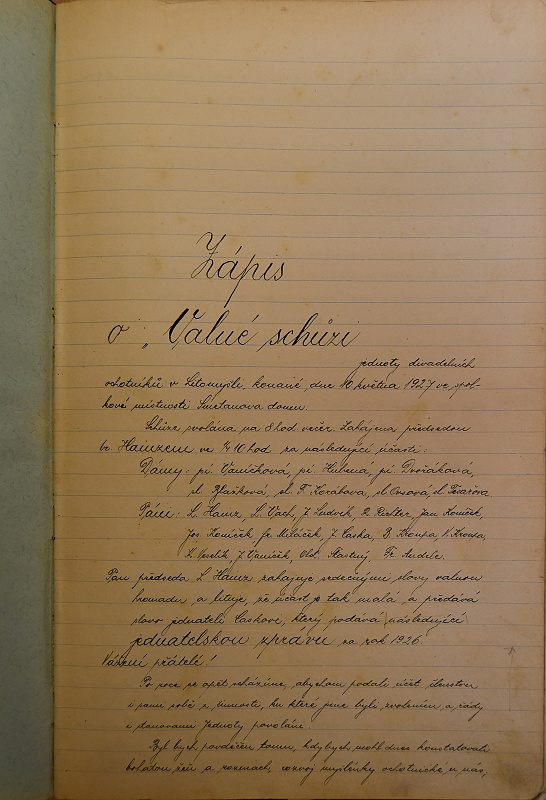 Zápis
o „Valné schůzi
jednoty divadelních
ochotníků v Litomyšli, konané, dne 10 května 1927 ve spol-
kové místnosti Smetanova domu.
Schůze svolána na 8 hod večer. Zahájena předsedou
br. Hainzem ve ¼ 10 hod za následující účasti:
Dámy: pí. Vaníčková, pí Hulená, pí. Dvořáková,
sl. Blažková, sl. F. Korábova, sl. sl. Tesařova
Páni: L. Hainz, L. Vach, J. Ludvík, R. Richter, Jan Komíček,
Jos Komíček, fr Miláček, J. Caska, B. Kroupa, V. Kroupa,
K. Veselík, J. Vaníček, Old. Šťastný, Fr. Anděle.
Pan předseda L. Hainz zahajuje srdečnými slovy valnou
hromadu a lituje, že účast je tak malá a předává
slovo jednateli Caskovi, který podává následující
jednatelskou zprávu za rok 1926.
Vážení přátelé!
Po roce se opět scházíme, abychom podali účet členstvu
i sami sobě z činnosti, ku které jsme byli zvolením a řády
i stanovami Jednoty povoláni.
Byl bych povděčen tomu, kdybych mohl dnes konstatovati
bohatou žeň a rozmach, rozvoj myšlénky ochotnické u nás,